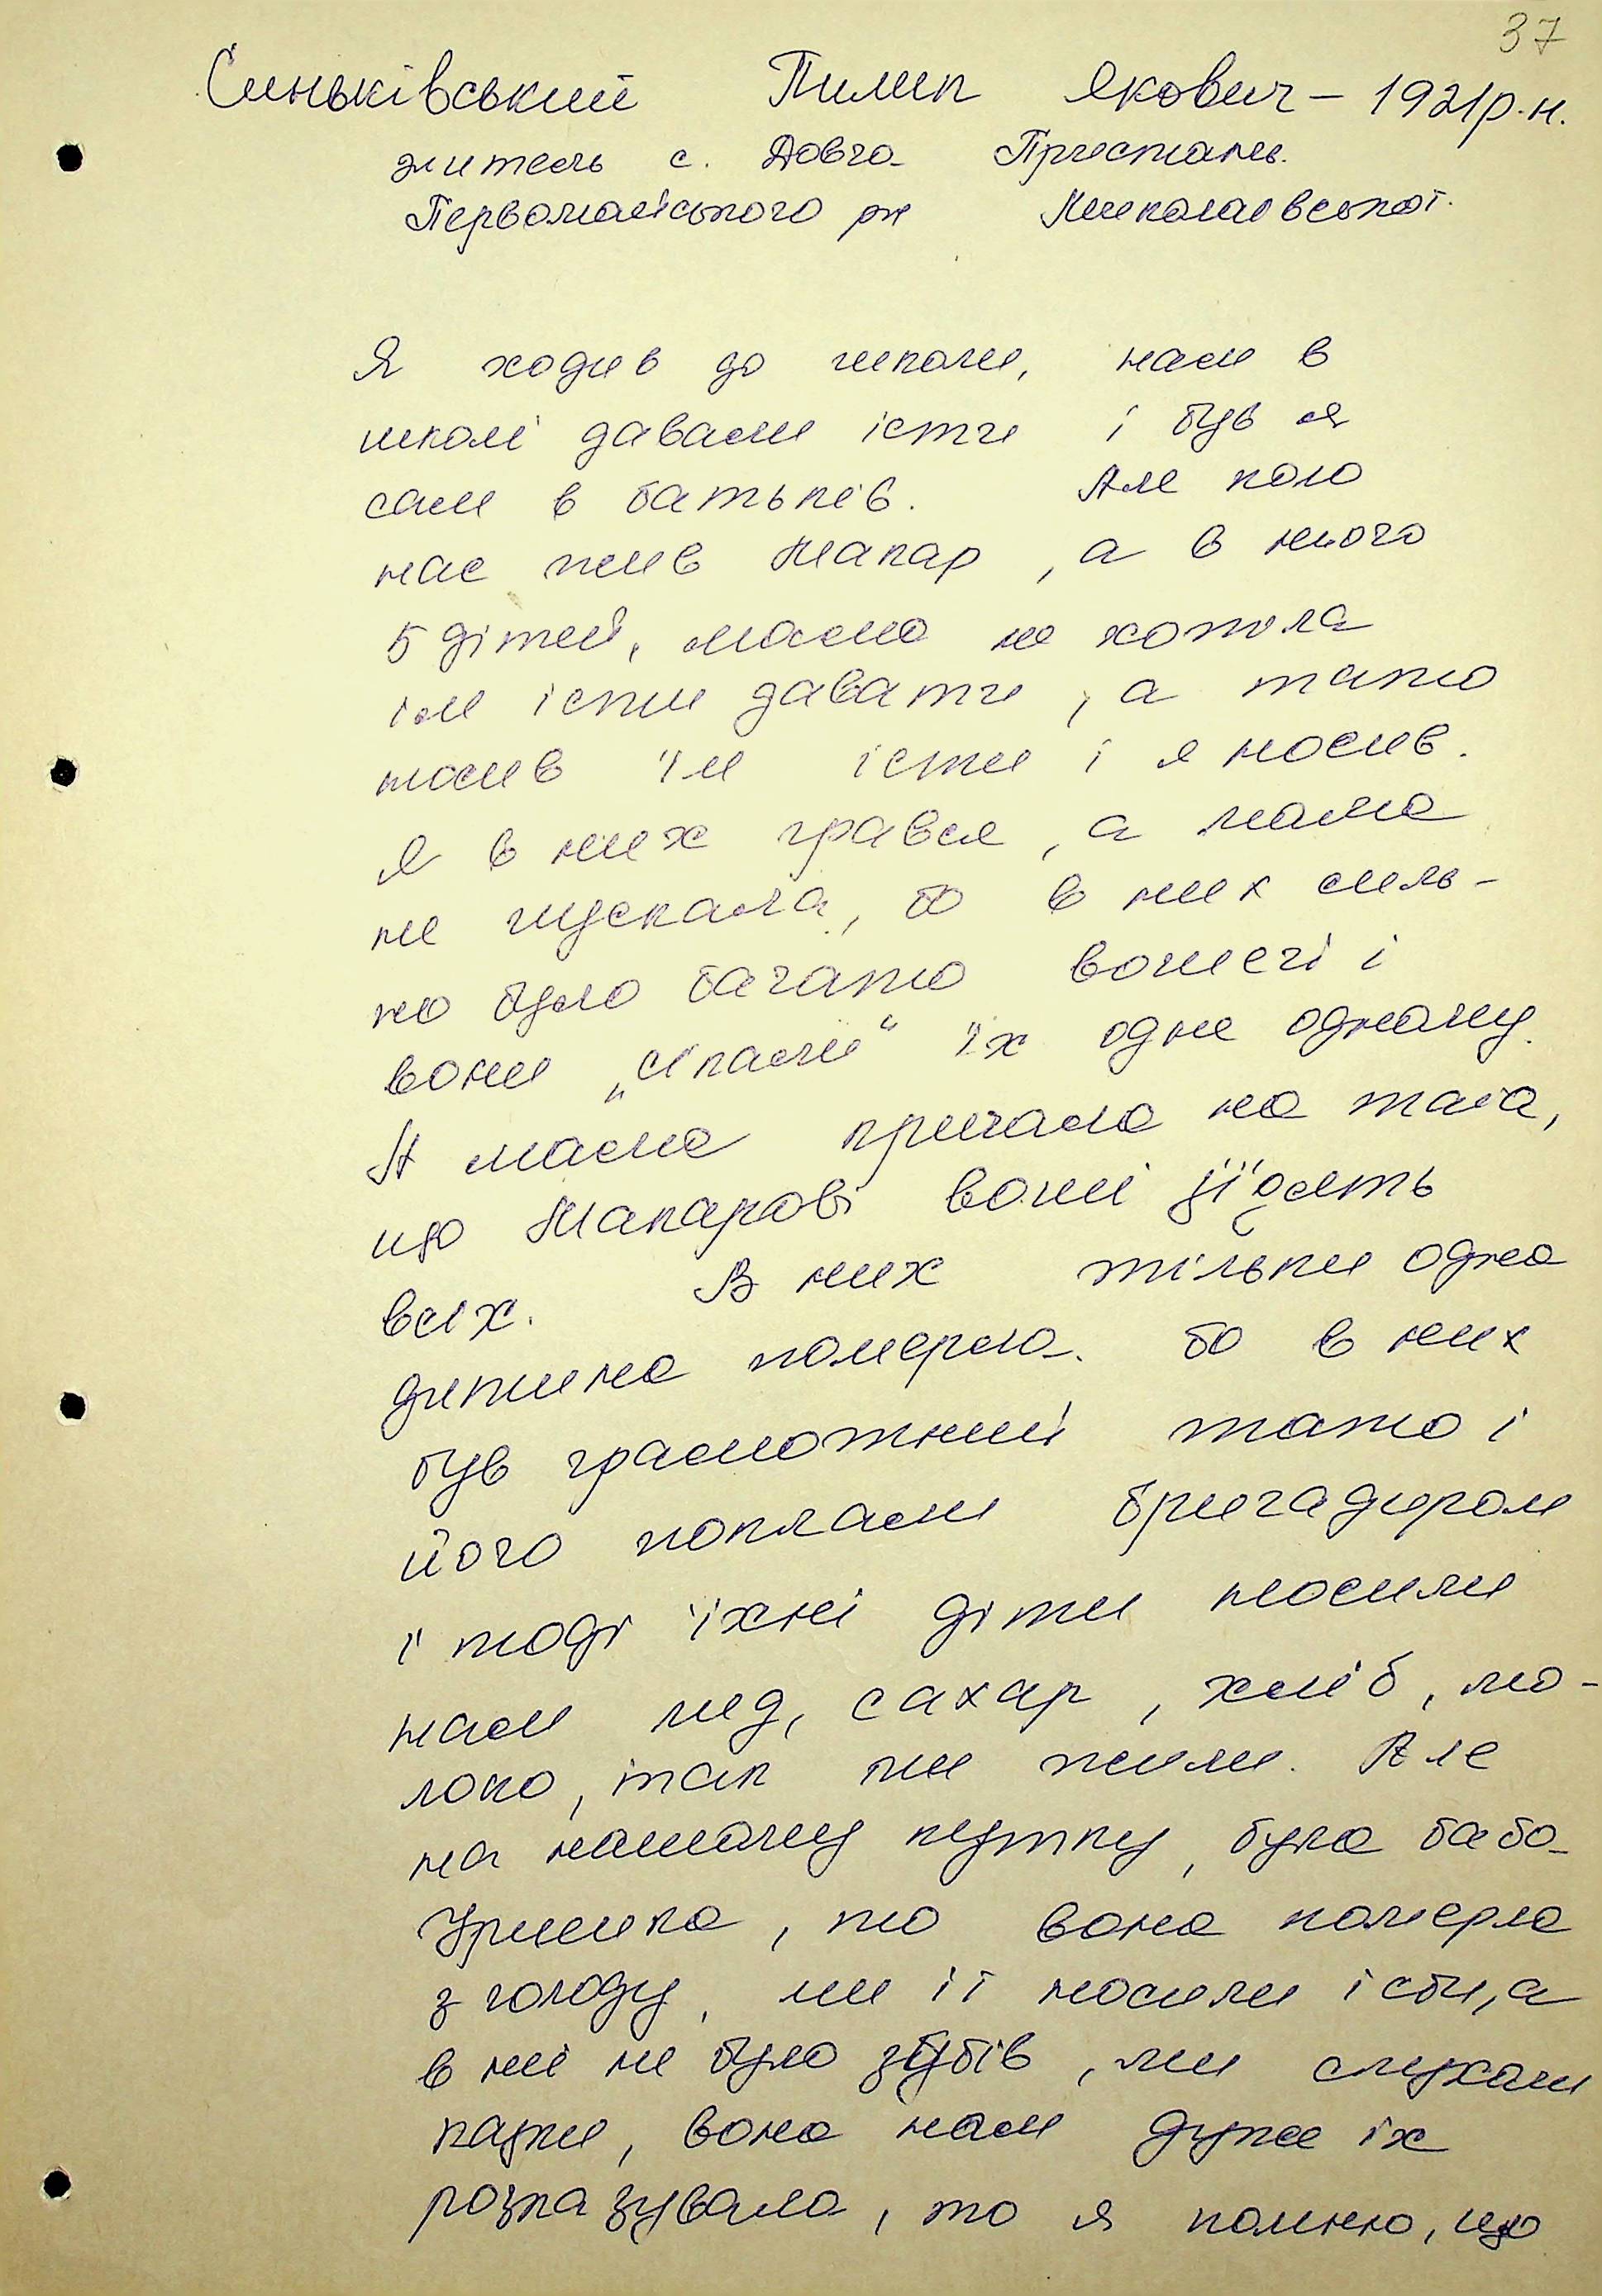 37
Синьківський Пилип Якович – 1921 р.н.
житель с. Довга Пристань
Первомайського р-н Миколаївської.
Я ходив до школи, нам в
школі давали їсти і був я
сам в батьків. Але коло
нас жив Макар, а в нього
5 дітей, мама не хотіла
їм їсти давати, а тато
носив їм їсти і я носив.
Я в них грався, а мама
не пускала, бо в них силь-
но було багато вошей і
вони „сіпали" їх одне одному.
А мама кричала на тата,
що Макарові воші з'їдять
всіх. В них тільки одна
дитина померла. бо в них
був грамотний тато і
його поклали бригадиром
і тоді їхні діти носили
нам мед, сахар, хліб, мо-
локо, так ми жили. Але
на нашому кутку, була баба
Уришка, то вона померла
з голоду, ми її носили їсти, а
в неї не було зубів, ми слухали
казки, вона нам дуже їх
розказувала, то я помню, що